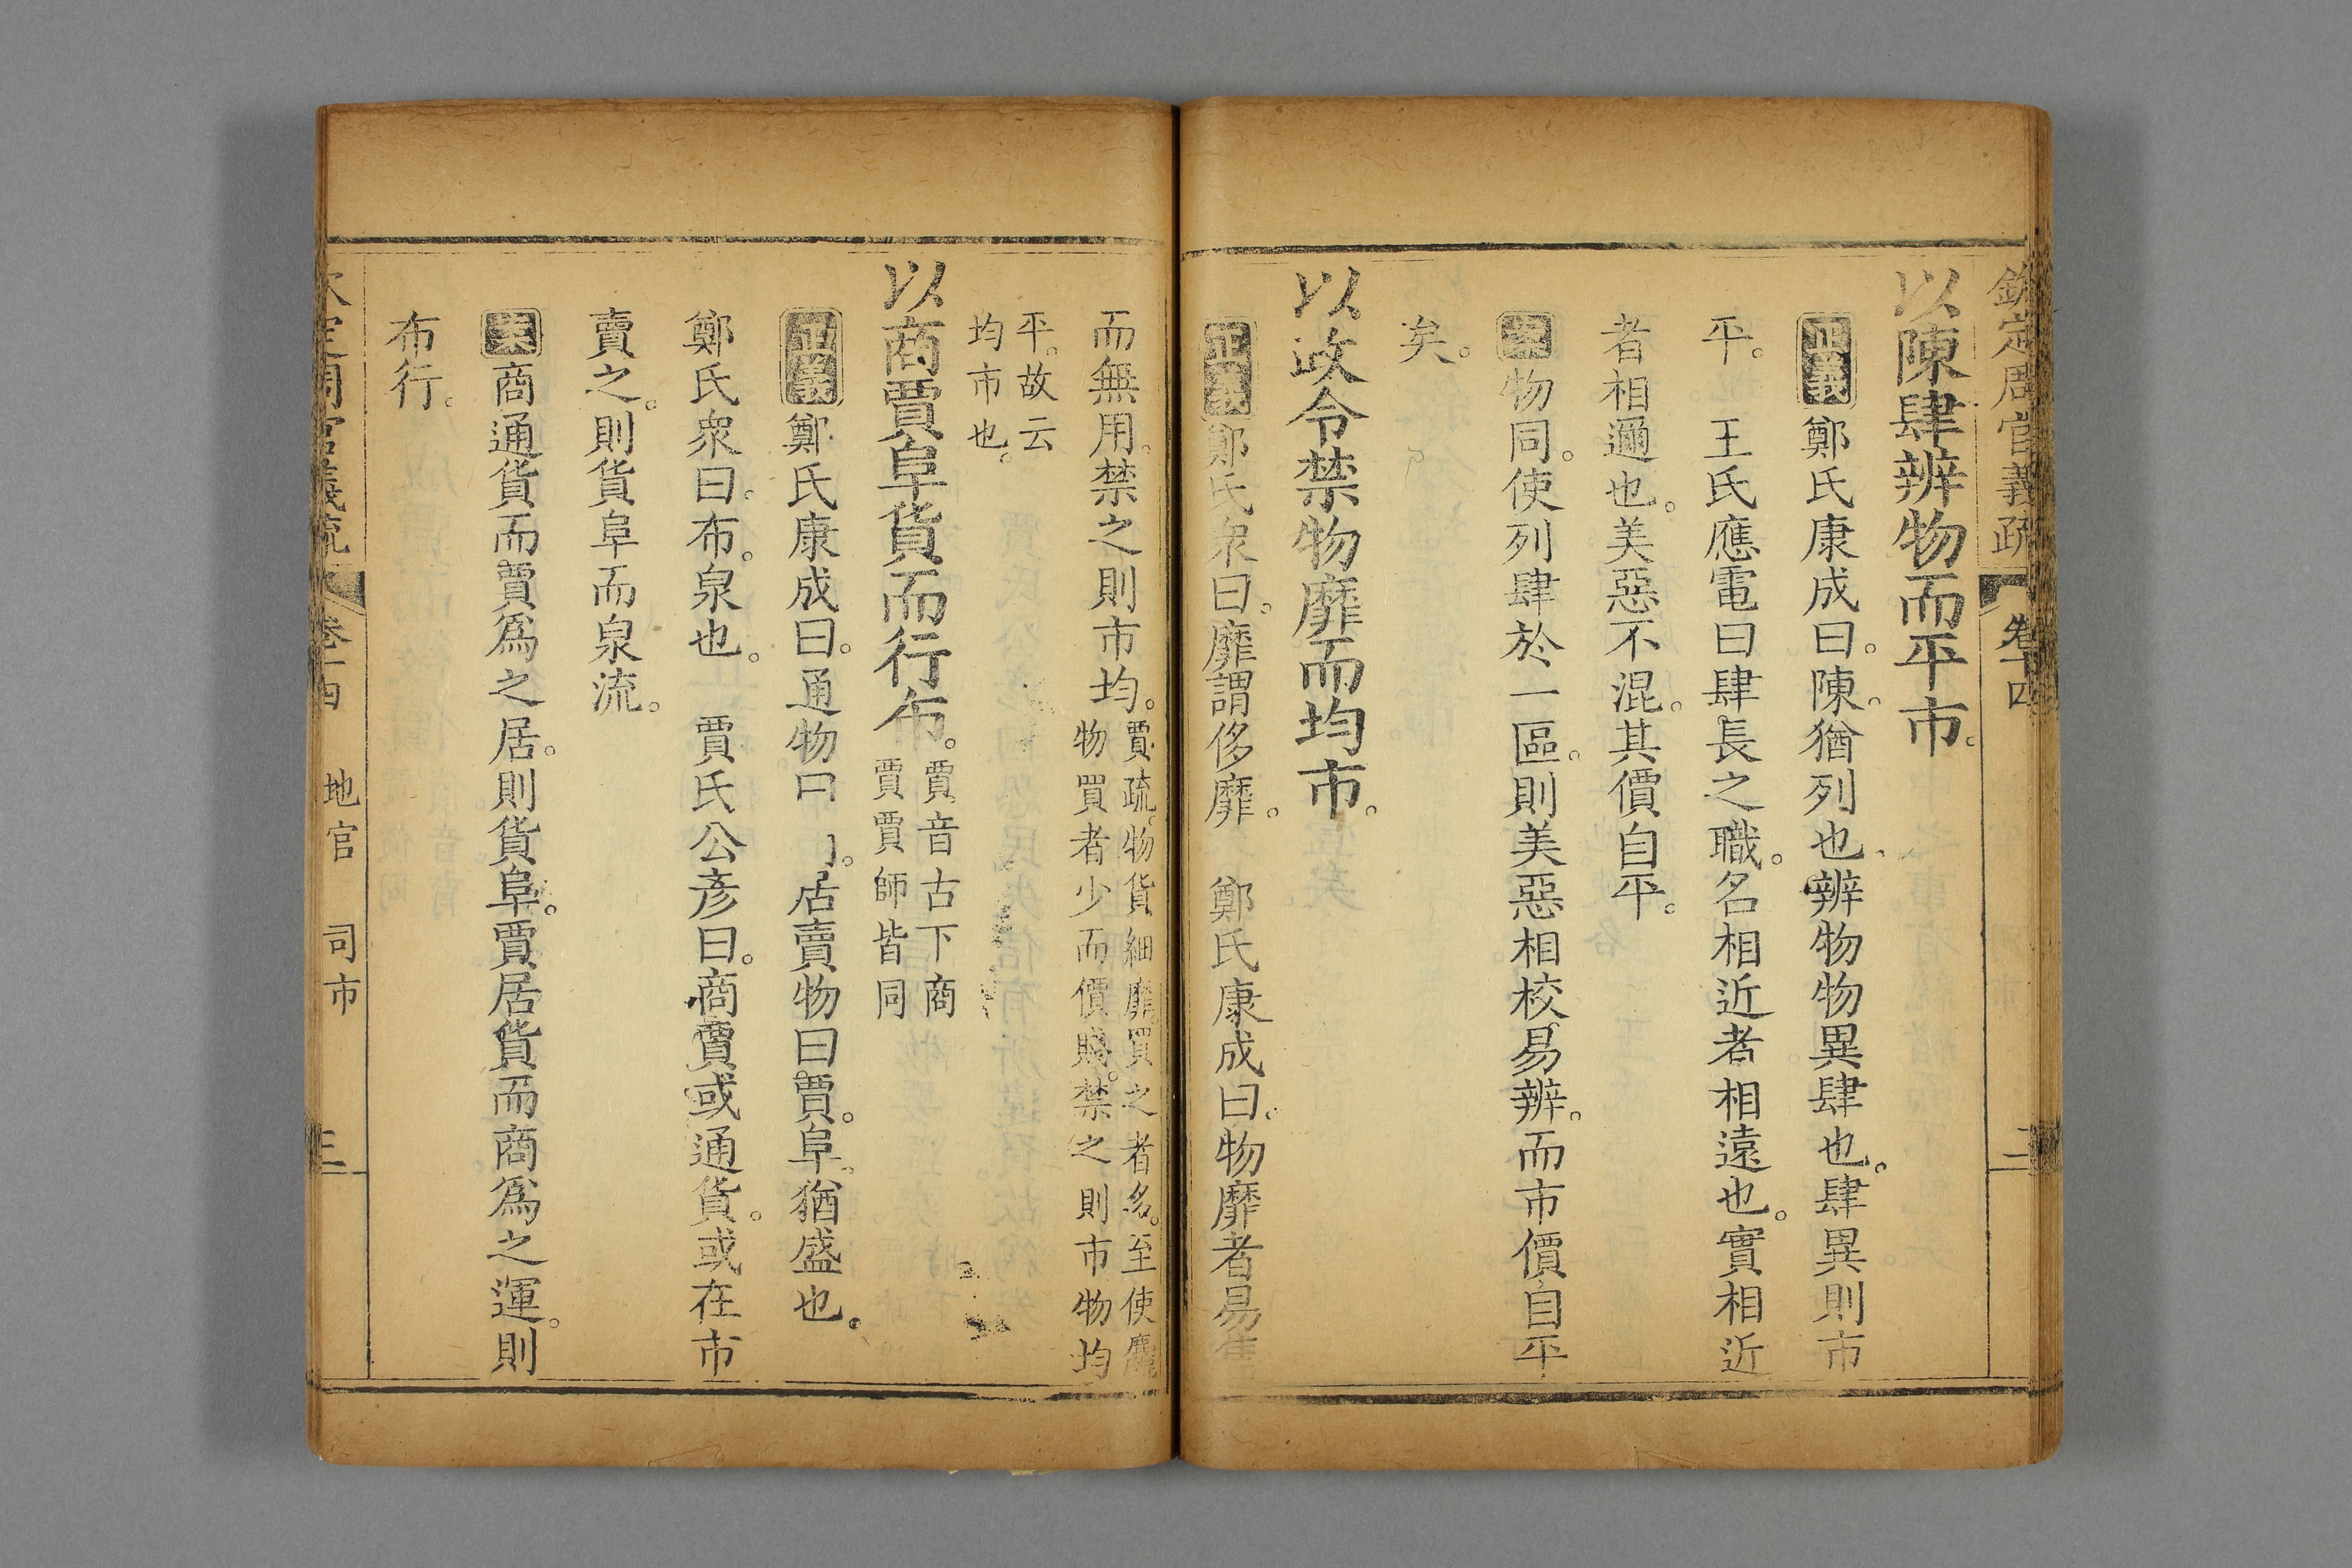 欽定周官義疏 卷十四
以陳肆辨物而平市。
正義 鄭氏康成曰。陳。猶列也、辨物物異肆也。肆異則市
平。 王氏應電曰肆長之職。名相近者相遠也。實相近
者相邇也。美惡不混。其價自平。
案 物同。使列肆於一區。則美惡相校易辨。而市價自平
矣。
以政令禁物靡而均市。
正義 鄭氏衆曰。靡謂侈靡。 鄭氏康成曰。物靡者易售
而無用。禁之則市均。賈疏。物貨細靡。買之者多。至使麤
物買者少而價賤。禁之則市物均
平。故云
均市也。
以商賈阜貨而行布。賈音古下商
賈賈師皆同
正義 鄭氏康成曰。通物曰 居賣物曰賈。阜。猶盛也。
鄭氏衆曰。布。泉也。 賈氏公彥曰。商賈或通貨。或在市
賣之。則貨阜而泉流。
案 商通貨而賈爲之居。則貨阜。賈居貨而商爲之運。則
布行。
欽定周官義疏 卷十四 地官 司市 三